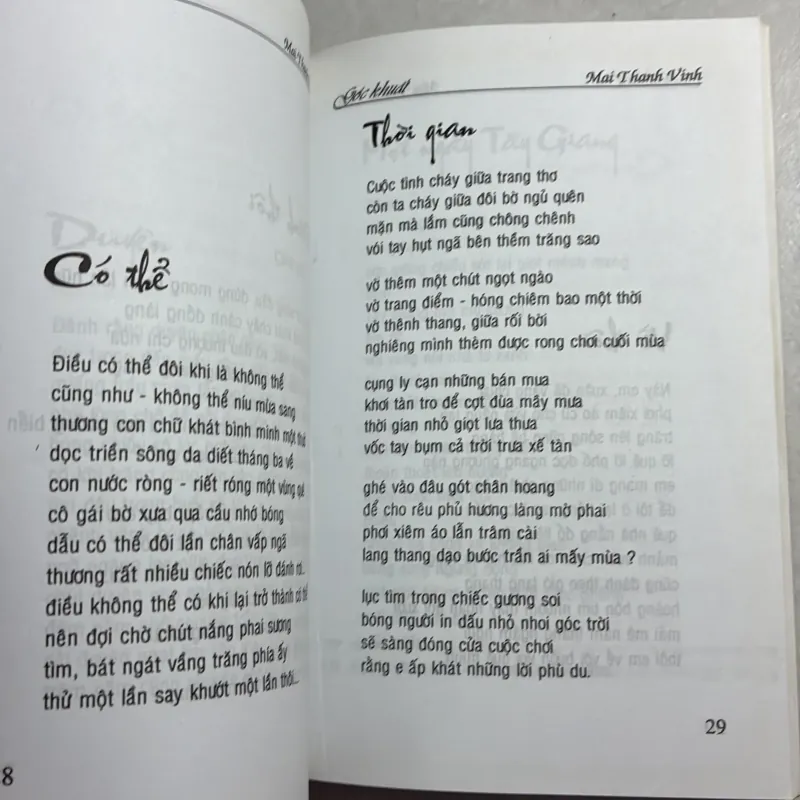 Mai
Có thể
Điều có thể đôi khi là không thể
cũng như - không thể níu mùa sang
thương con chữ khát bình minh một
dọc triền sông da diết tháng ba về
con nước ròng - riết róng một vùng quê
cô gái bờ xưa qua cầu nhớ bóng
dẫu có thể đôi lần chân vấp ngã
thương rất nhiều chiếc nón lỡ đánh rơi..
điều không thể có khi lại trở thành có thể
nên đợi chờ chút nắng phai sương
tìm, bát ngát vầng trăng phía ấy
thử một lần say khướt một lần thôi...
8
Góc khuất
Mai Thanh Vinh
Thời gian
Cuộc tình cháy giữa trang thơ
còn ta cháy giữa đôi bờ ngủ quên
mặn mà lắm cũng chông chênh
vói tay hụt ngã bên thềm trăng sao
vờ thêm một chút ngọt ngào
vờ trang điểm - hóng chiêm bao một thời
vờ thênh thang, giữa rối bời
nghiêng mình thèm được rong chơi cuối mùa
cụng ly cạn những bán mua
khơi tàn tro để cợt đùa mây mưa
thời gian nhỏ giọt lưa thưa
vốc tay bụm cả trời trưa xế tàn
ghé vào đâu gót chân hoang
để cho rêu phủ hương làng mờ phai
phơi xiêm áo lẫn trâm cài
lang thang dạo bước trần ai mấy mùa ?
lục tìm trong chiếc gương soi
bóng người in dấu nhỏ nhoi góc trời
sẽ sàng đóng cửa cuộc chơi
rằng e ấp khát những lời phù du.
29